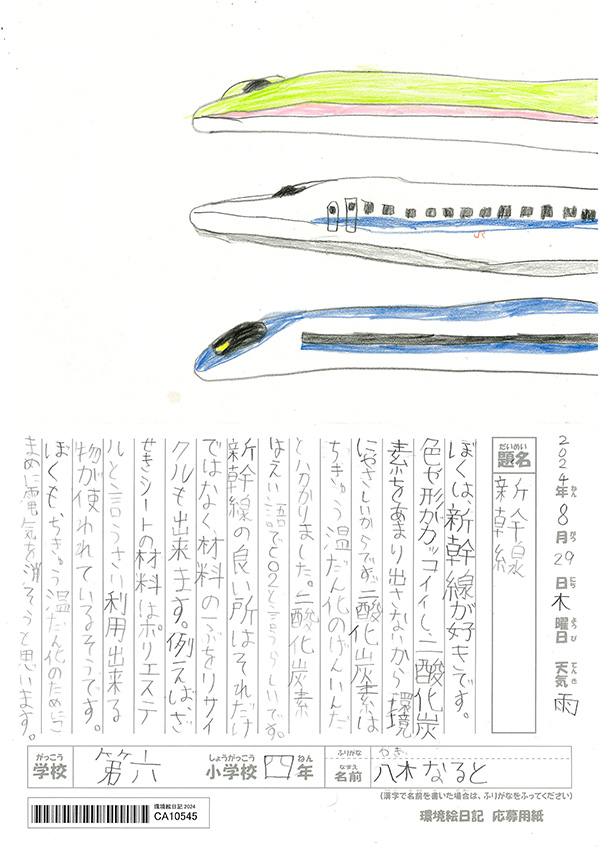 JR
2024年8月29日木曜日 天気雨
ねん がつ にち ようび てんき
だいめい
題名
新幹線
ぼくは、新幹線が好きです。
色や形がカッコイイし、二酸化炭
素をあまり出さないから環境
にやさしいからです。二酸化炭素は
ちきゅう温だん化のげんいんだ
と分かりました。二酸化炭素
はえい語でCO2と言うらしいです。
新幹線の良い所はそれだけ
ではなく、材料の一ぶをリサイ
クルも出来ます。例えばざ
せきシートの材料はポリエステ
ルと言うさい利用出来る
物が使われているそうです。
ぼくも、ちきゅう温だん化のためにこ
まめに電気を消そうと思います。
がっこう しょうがっこう ねん ふりがな やぎ
学校 第六 小学校 四年 なまえ 名前 八木なると
(漢字で名前を書いた場合は、ふりがなをふってください)
環境絵日記 2024
CA10545
環境絵日記 応募用紙